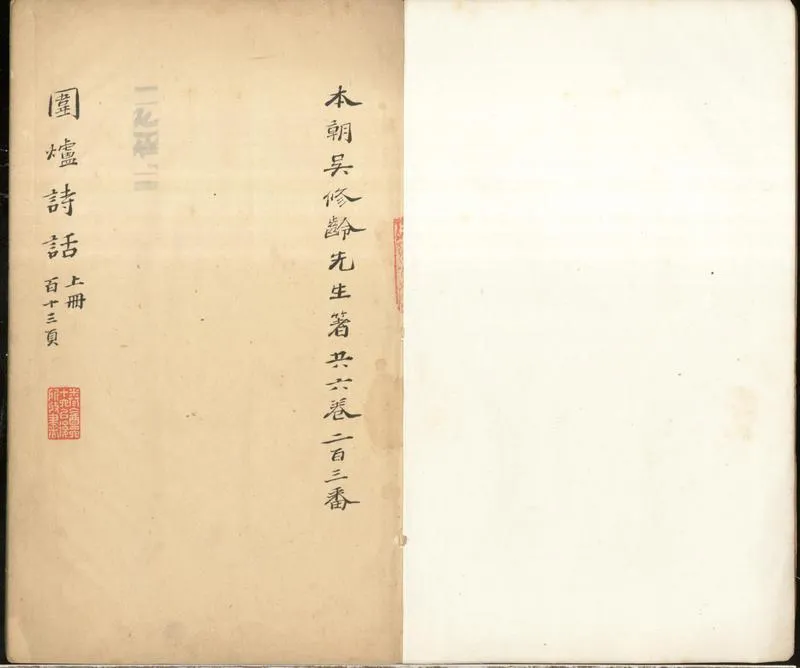 本朝吳修齡先生著共六卷二百三番
圍爐詩話
上冊
百十三頁